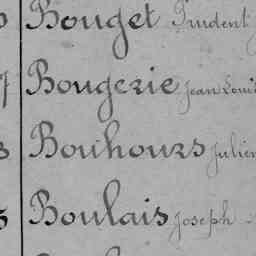 Bouget Prudent
Bougerie Jean Louis
Bouhours Julien
Boulais Joseph